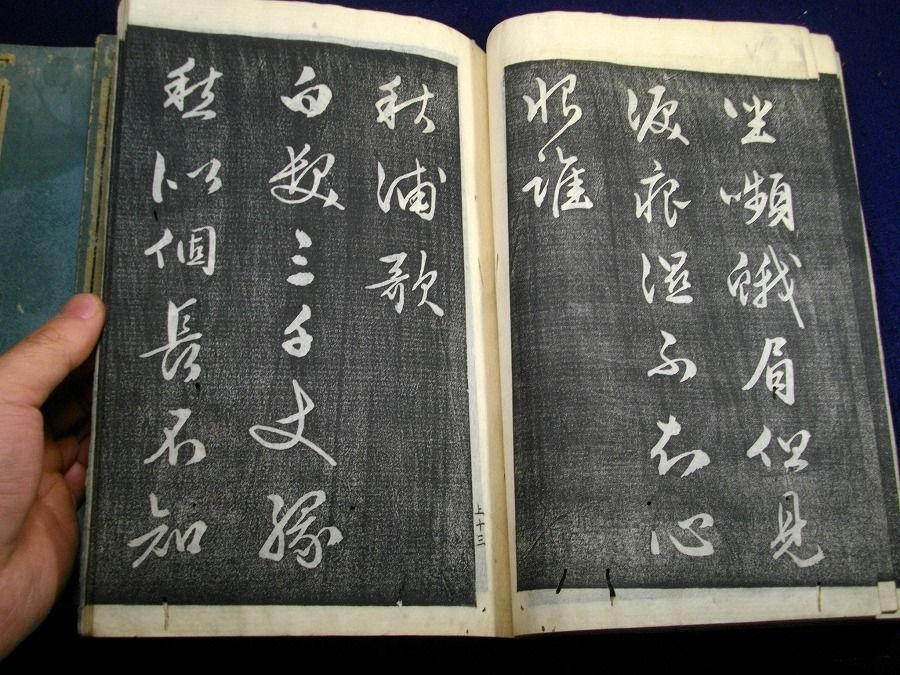 坐嚬蛾眉但見
淚痕濕不知心
恨誰
秋浦歌
白髮三千丈緣
愁似個長不知
上十三